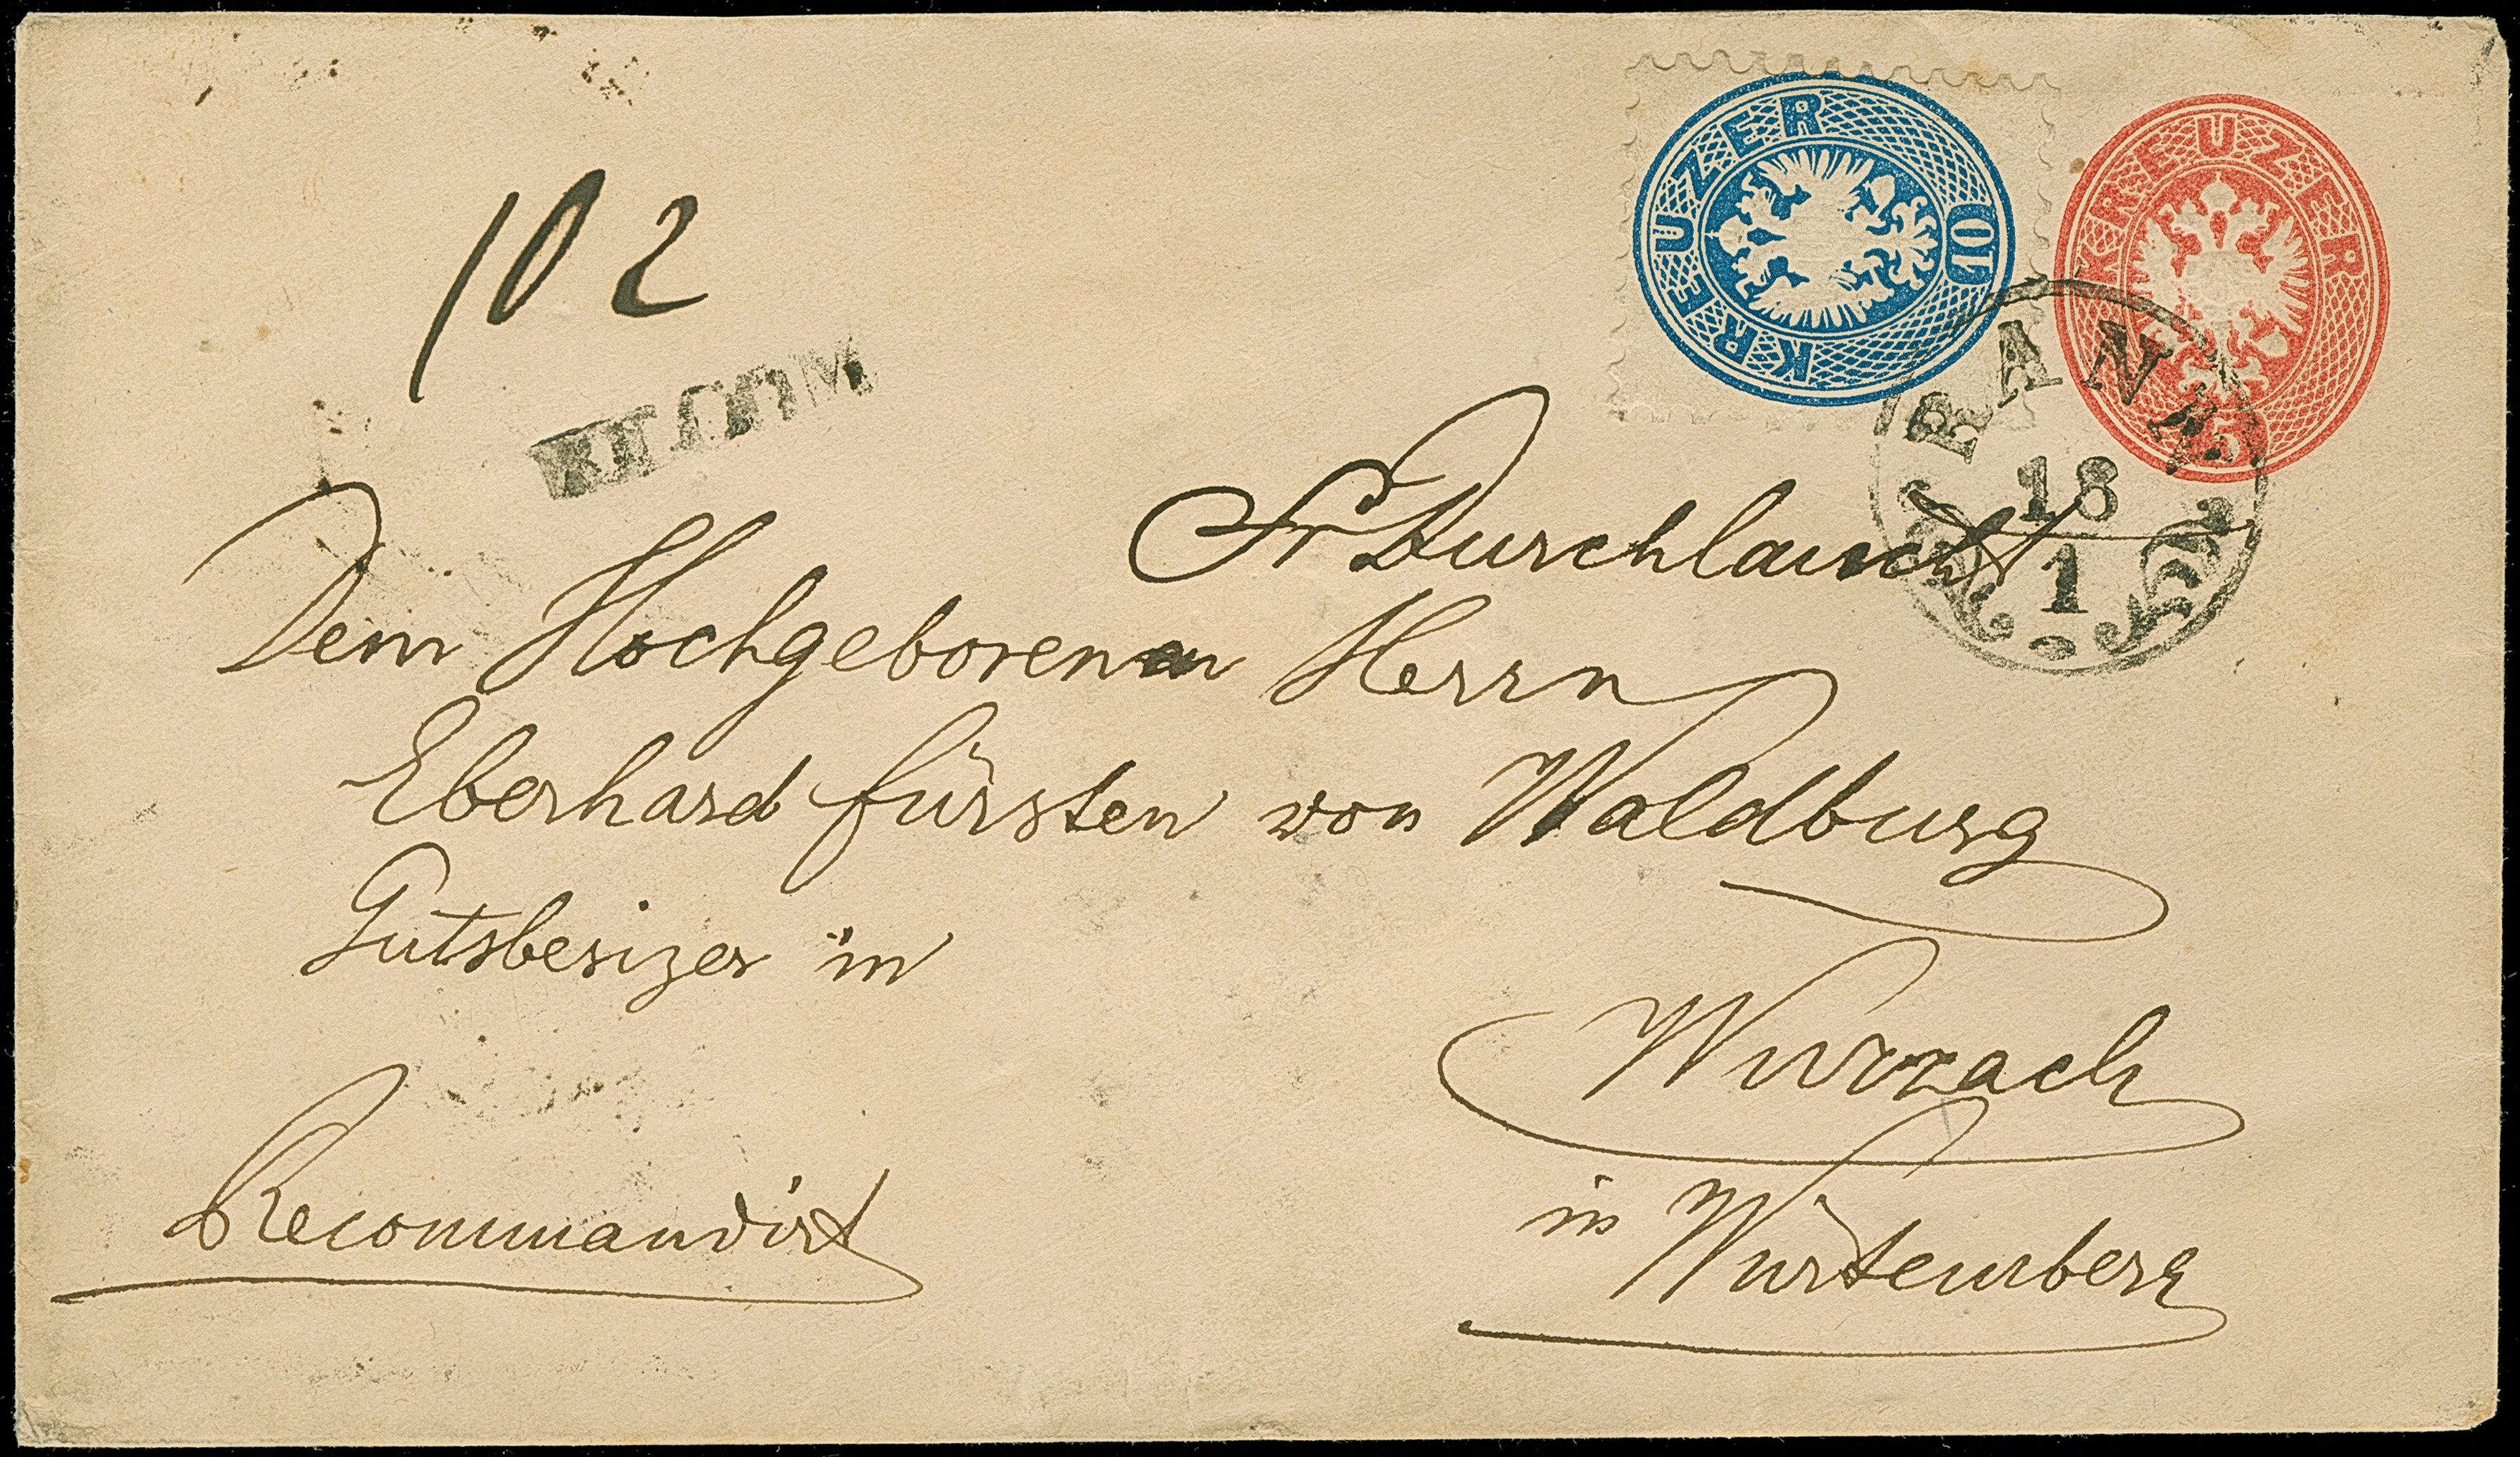 102
KREUZER 10
KREUZER 5
18
1
Sr Durchlaucht
Dem Hochgeborenen Herrn
Eberhard Fürsten von Waldburg
Gutsbesizer in
Wurzach
Recommandirt
in Würtemberg